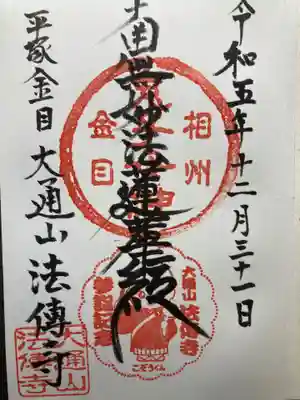 令和五年十二月三十一日
南無妙法蓮華経
平塚金目 大通山 法傳寺
相州
金目
大通山 法傳寺
こぞうくん
大通山
法傳寺